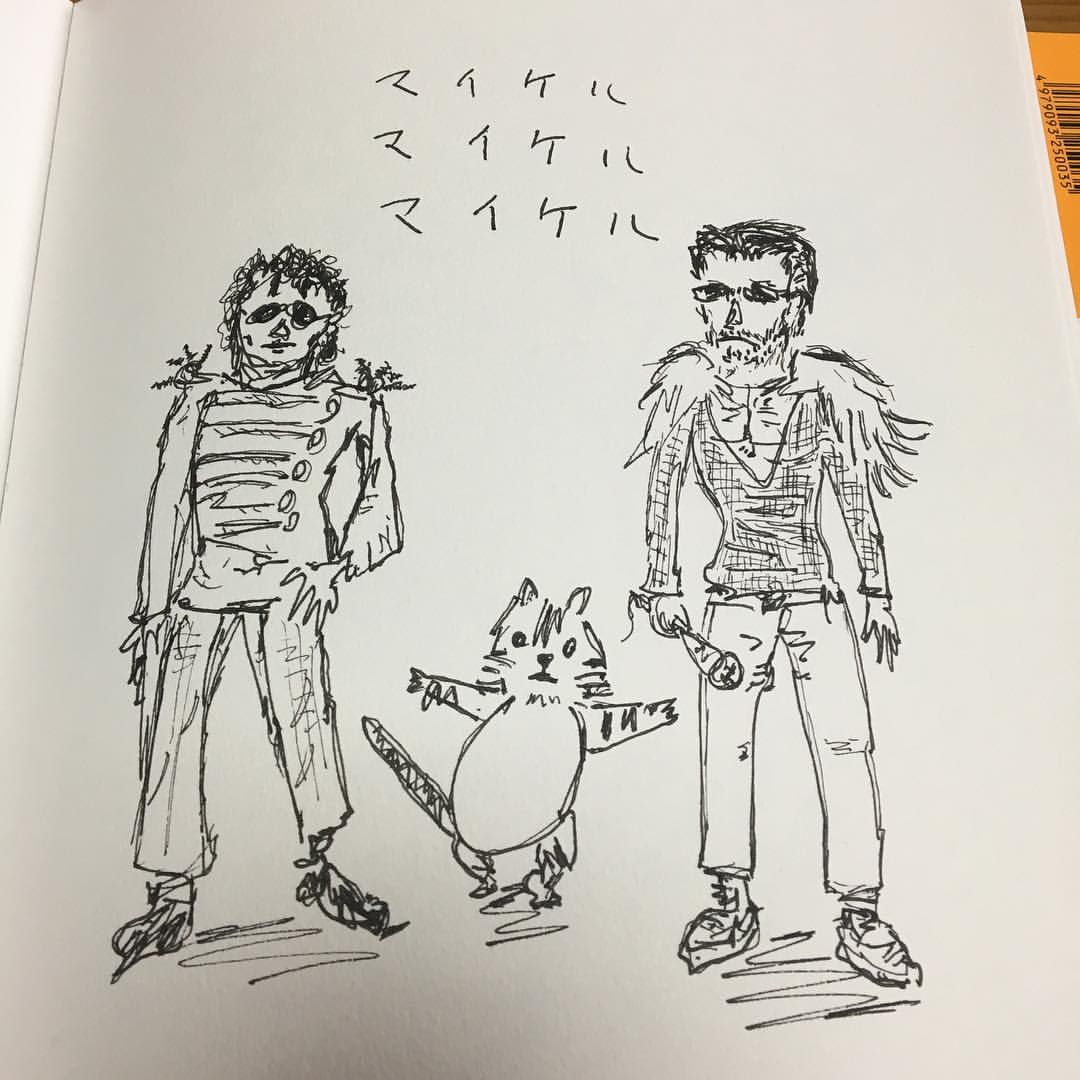 マイケル
マイケル
マイケル
4979093250035